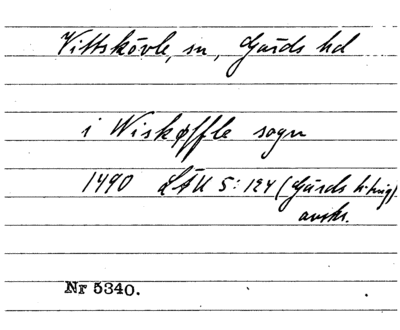 Vittskövle, sn, Gärds hd
i Wiskøffle sogn
1490 LÄU 5:124 (Gärds h.ting)
avskr.
Nr 5340.